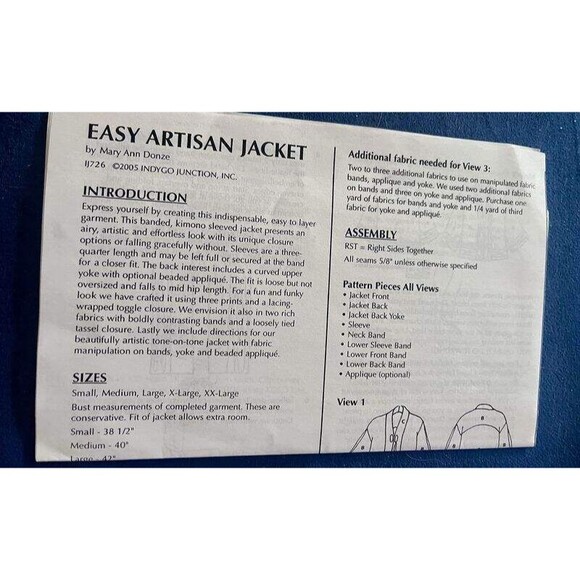 EASY ARTISAN JACKET
by Mary Ann Donze
IJ726 ©2005 INDYGO JUNCTION, INC.
INTRODUCTION
Express yourself by creating this indispensable, easy to layer
garment. This banded, kimono sleeved jacket presents an
airy, artistic and effortless look with its unique closure
options or falling gracefully without. Sleeves are a three-
quarter length and may be left full or secured at the band
for a closer fit. The back interest includes a curved upper
yoke with optional beaded appliqué. The fit is loose but not
oversized and falls to mid hip length. For a fun and funky
look we have crafted it using three prints and a lacing-
wrapped toggle closure. We envision it also in two rich
fabrics with boldly contrasting bands and a loosely tied
tassel closure. Lastly we include directions for our
beautifully artistic tone-on-tone jacket with fabric
manipulation on bands, yoke and beaded appliqué.
SIZES
Small, Medium, Large, X-Large, XX-Large
Bust measurements of completed garment. These are
conservative. Fit of jacket allows extra room.
Small - 38 1/2"
Medium - 40"
Large - 42"
Additional fabric needed for View 3:
Two to three additional fabrics to use on manipulated fabric
bands, applique and yoke. We used two additional fabrics
on bands and three on yoke and applique. Purchase one
yard of fabrics for bands and yoke and 1/4 yard of third
fabric for yoke and appliqué.
ASSEMBLY
RST = Right Sides Together
All seams 5/8" unless otherwise specified
Pattern Pieces All Views
• Jacket Front
• Jacket Back
• Jacket Back Yoke
• Sleeve
• Neck Band
• Lower Sleeve Band
• Lower Front Band
• Lower Back Band
• Applique (optional)
View 1